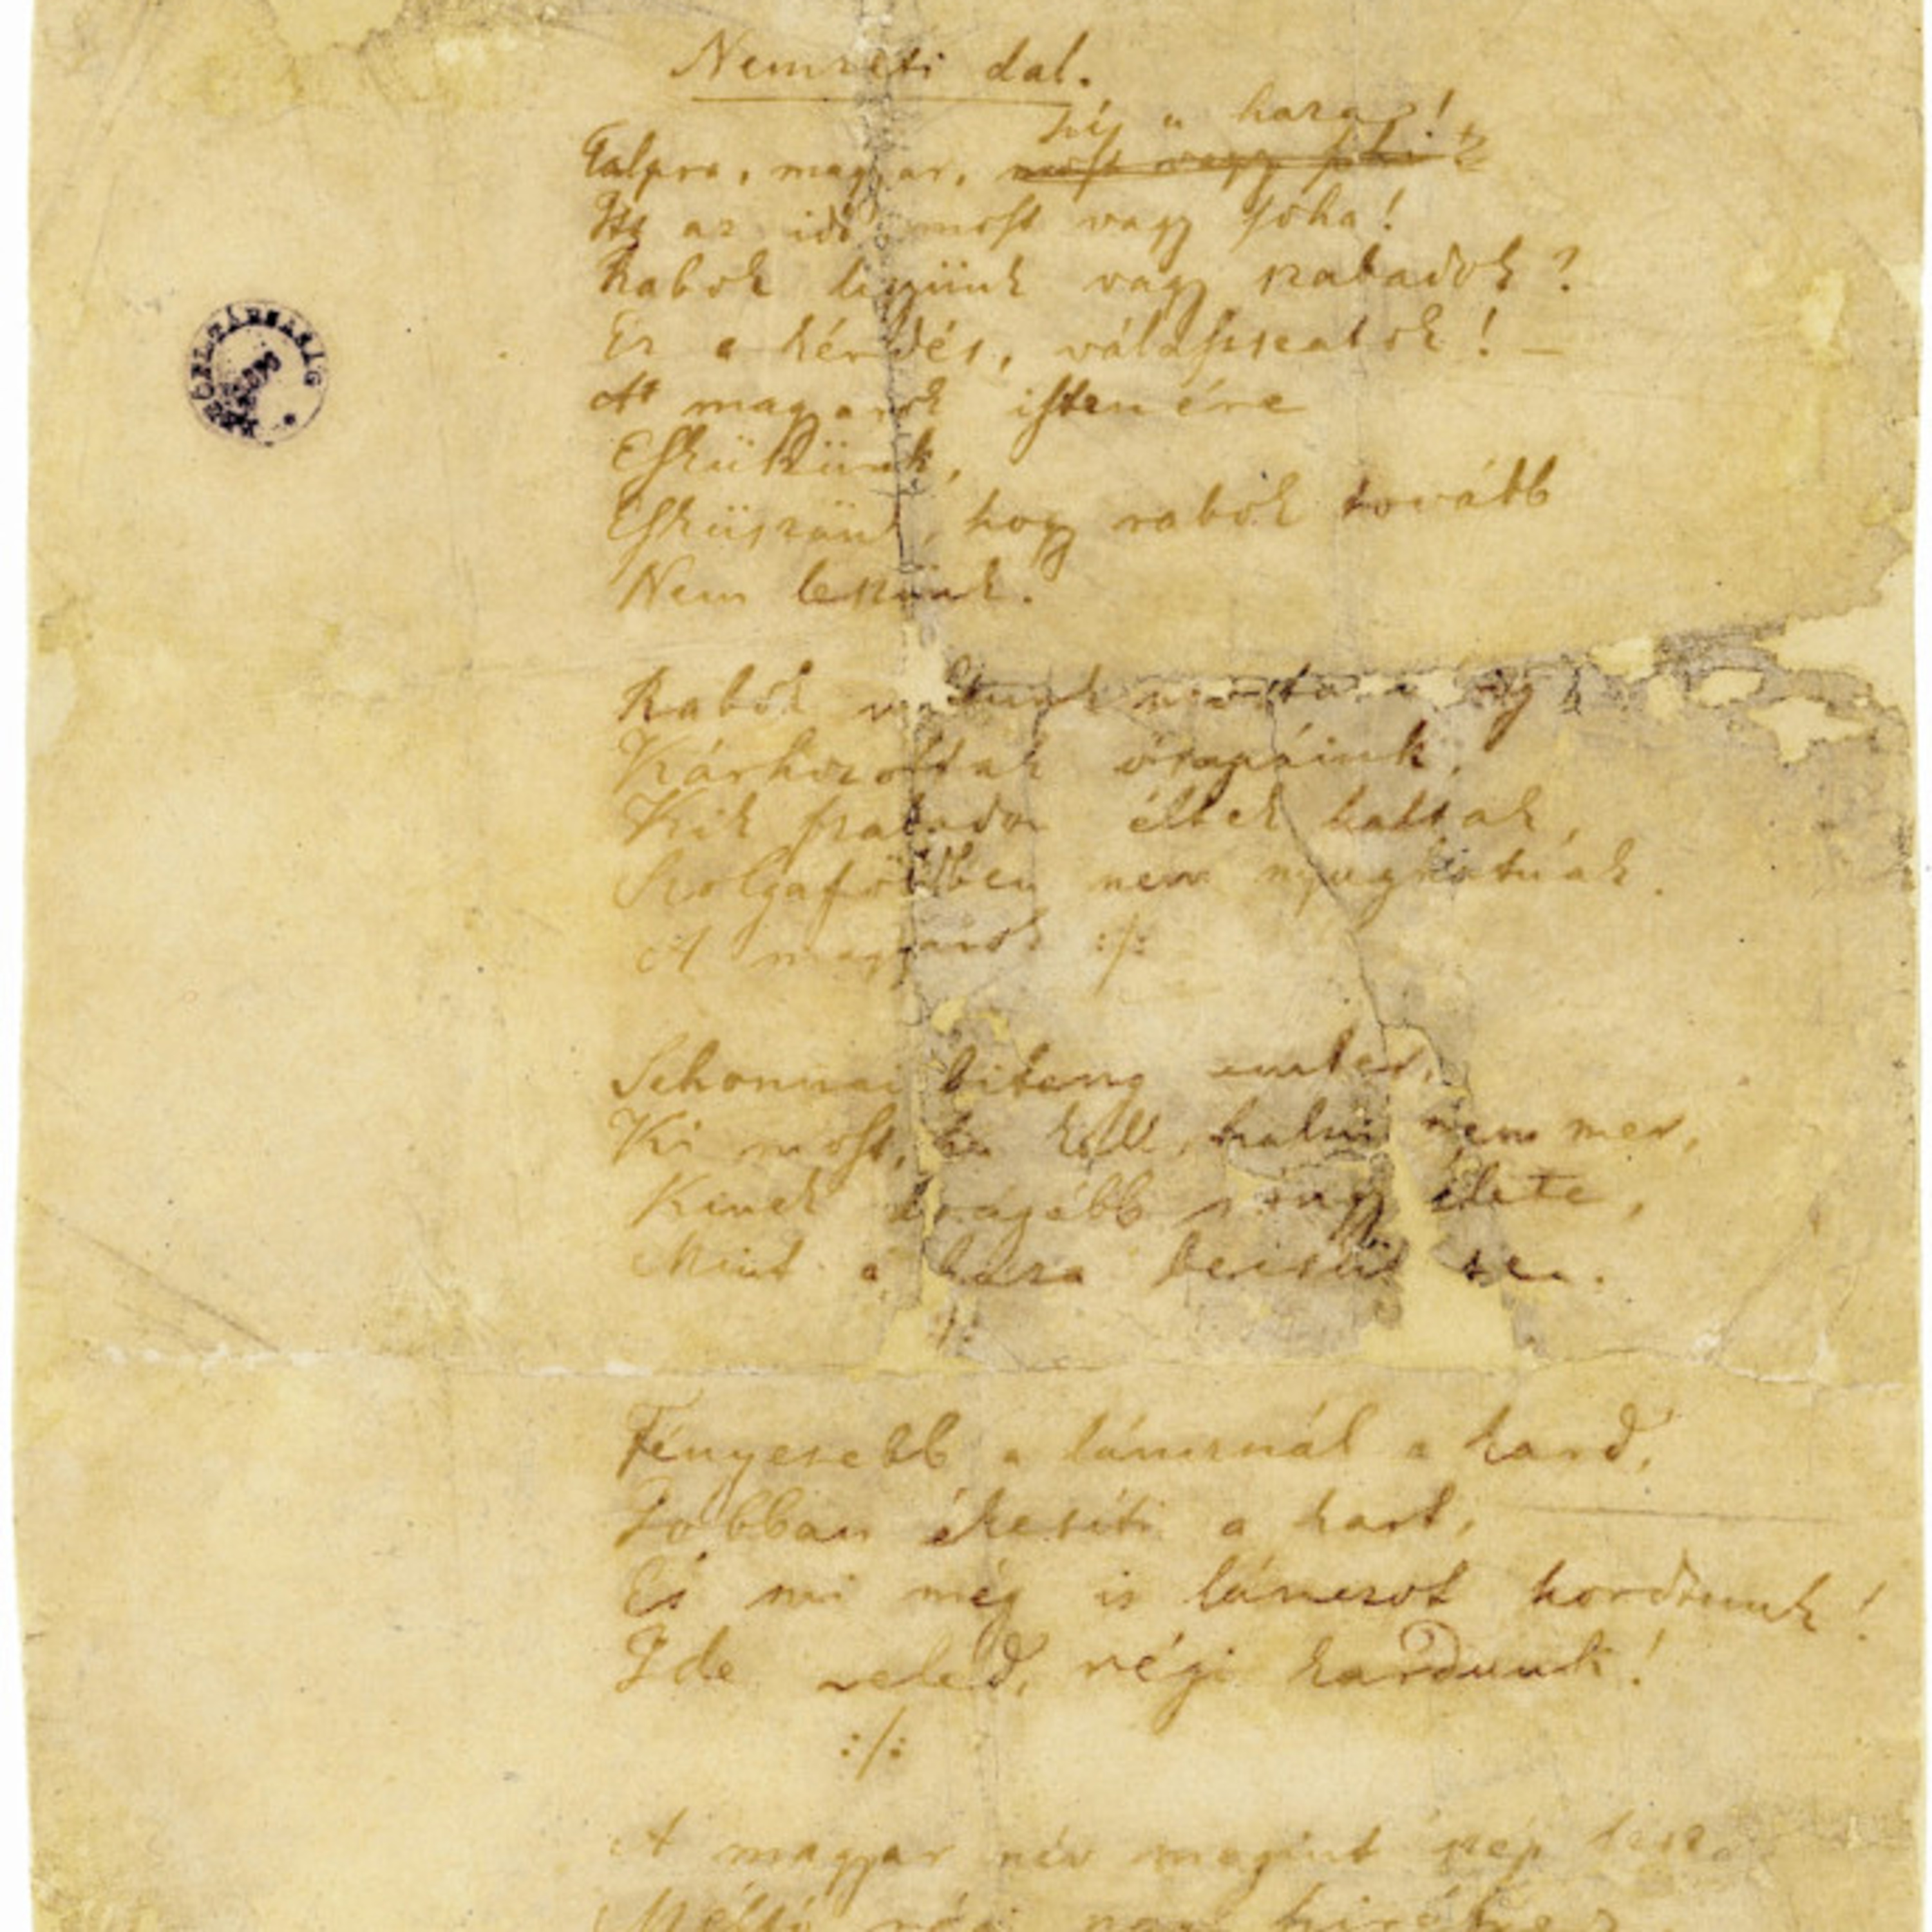 Nemzeti dal.
híj a haza!
Talpra, magyar, most vagy soha!
Itt az idő, most vagy soha!
Rabok legyünk vagy szabadok?
Ez a kérdés, válasszatok! —
A magyarok istenére
Esküszünk,
Esküszünk, hogy rabok tovább
Nem leszünk.
Rabok voltunk mostanáig
Kárhozottak ősapáink,
Kik szabadon éltek haltak,
Szolgaföldben nem nyughatnak.
A magyarok :/:
Sehonnai bitang ember,
Ki most, ha kell, halni nem mer,
Kinek drágább rongy élete,
Mint a haza becsülete.
:/:
Fényesebb a láncznál a kard,
Jobban ékesíti a kart,
És mi még is lánczot hordtunk!
Ide veled, régi kardunk!
:/:
A magyar név megint szép lesz,
Méltó régi nagy hiréhez
TÁRSASÁG